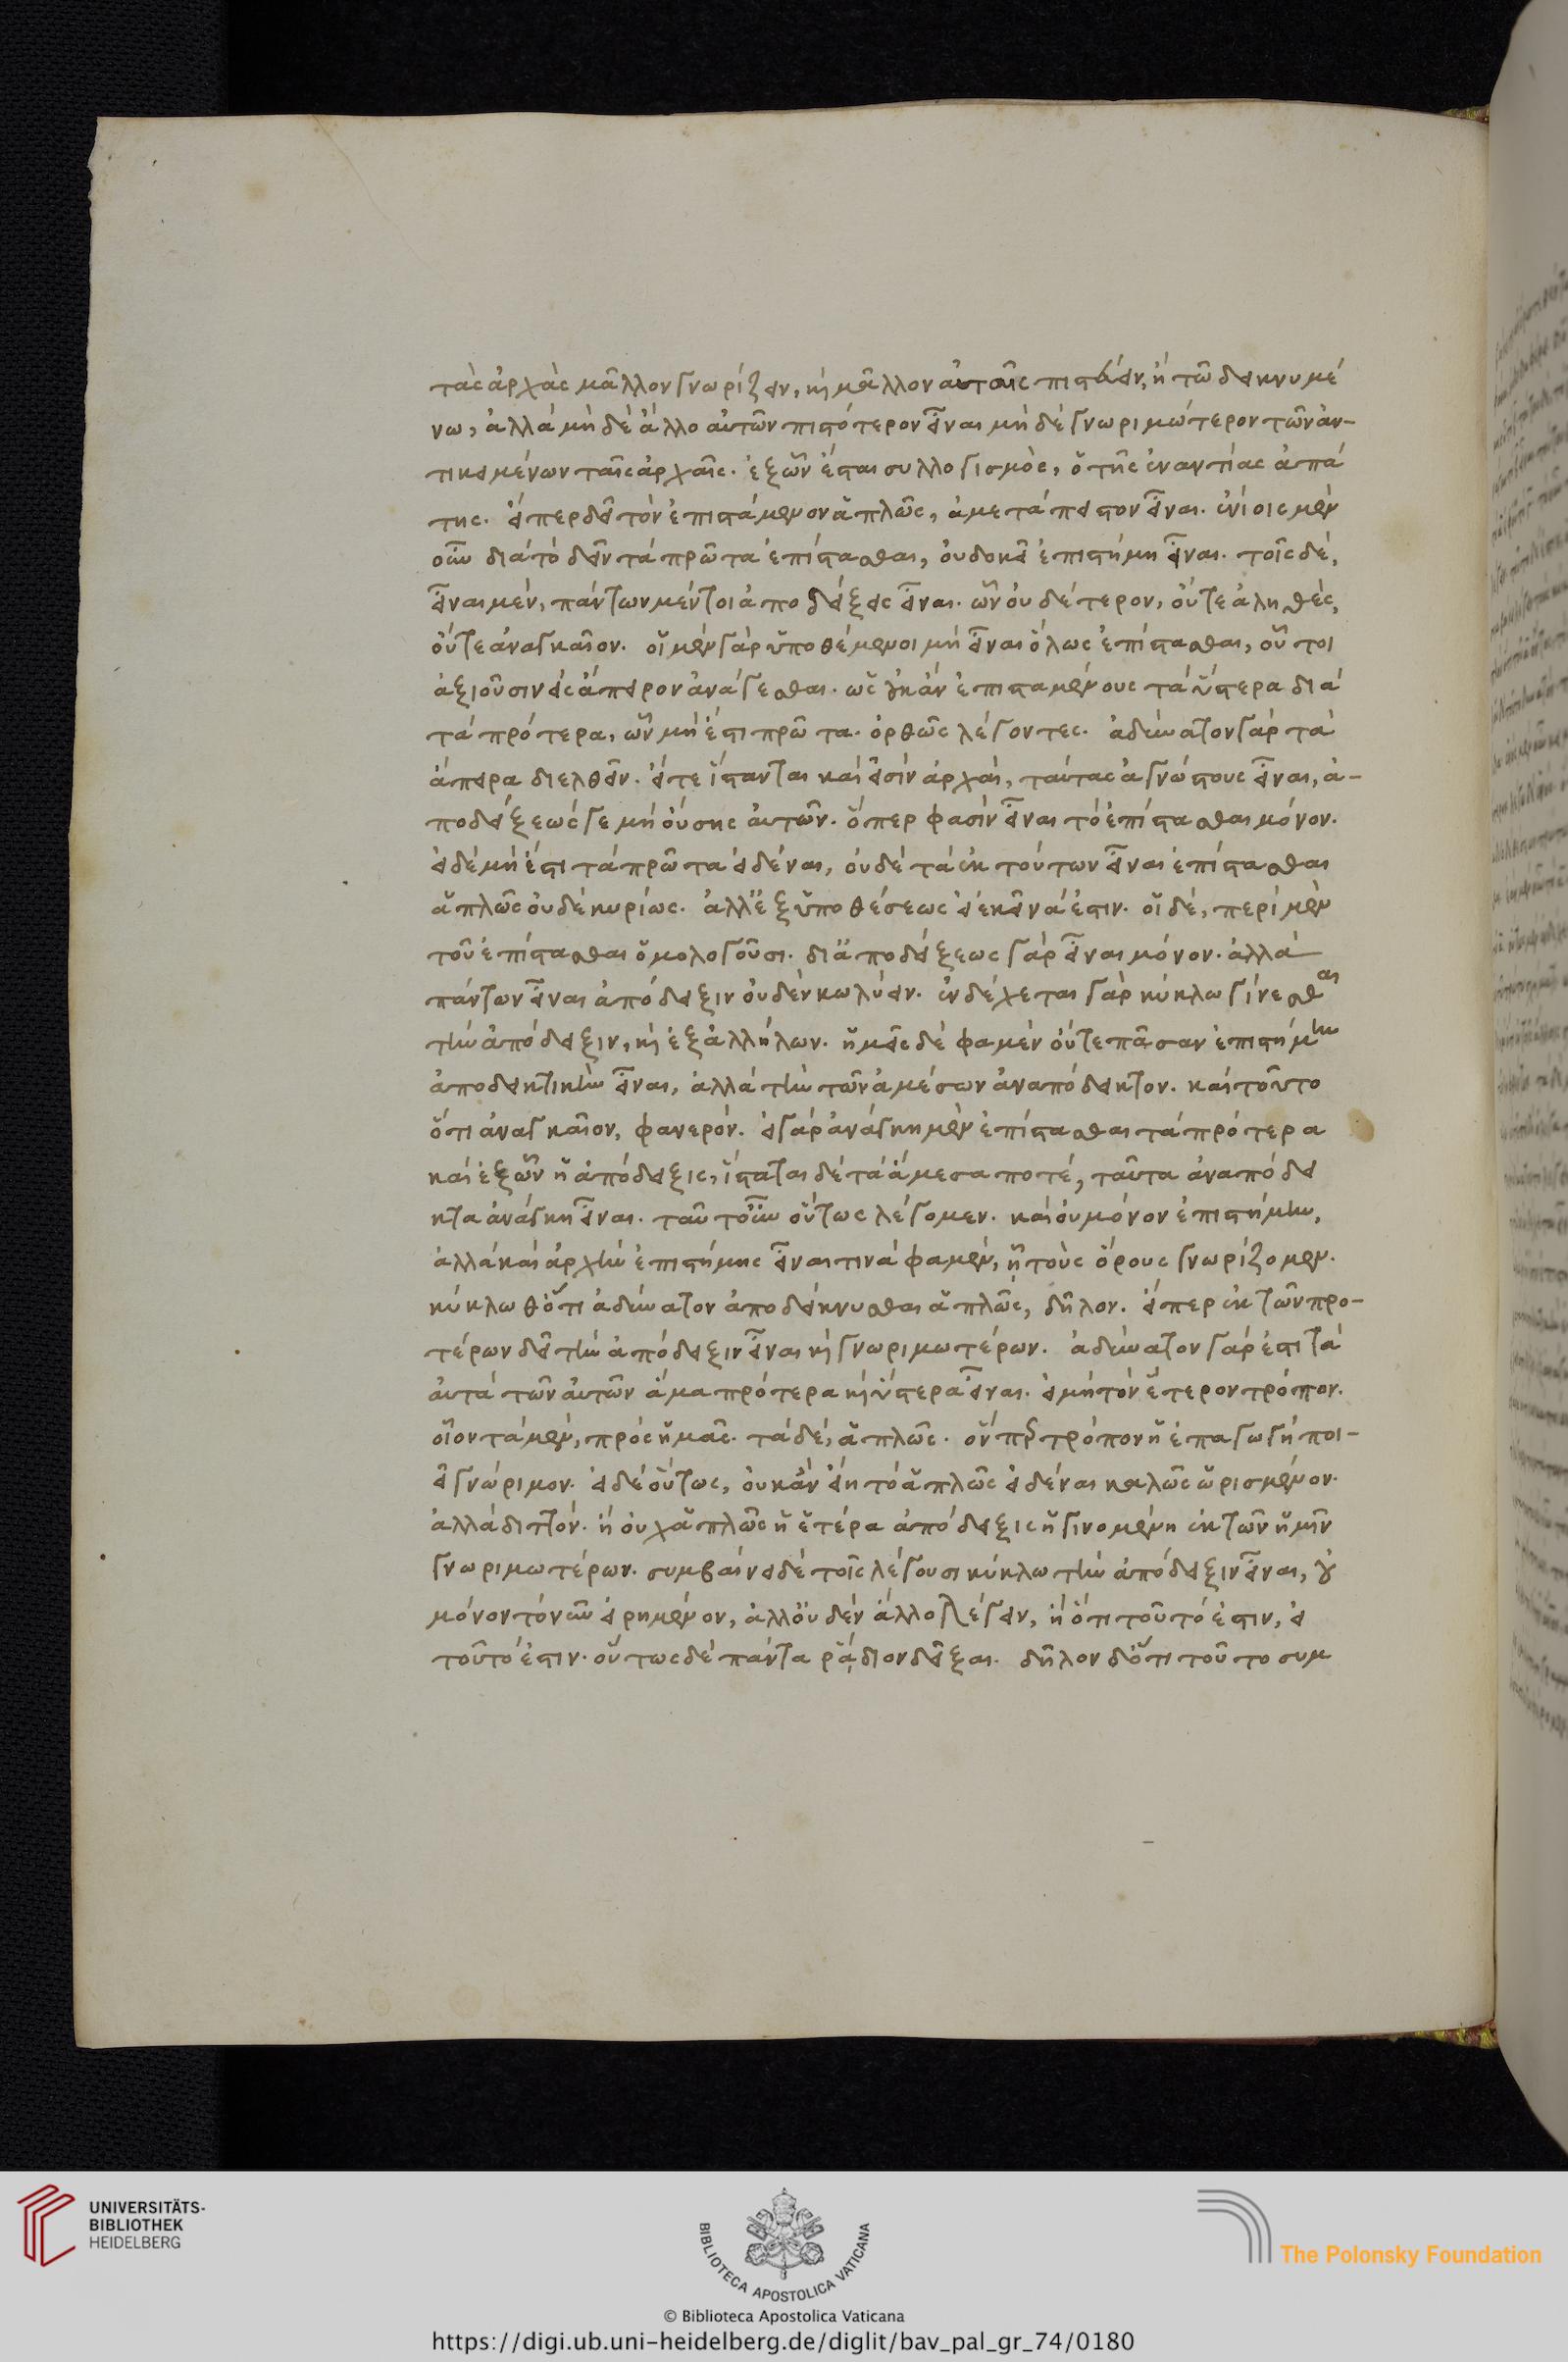 τὰς ἀρχὰς μᾶλλον γνωρίζειν, καὶ μᾶλλον αὐταῖς πιστεύειν, ἢ τῶ δεικνυμέ
νω, ἀλλὰ μὴ δὲ ἄλλο αὐτῶν πιστότερον εἶναι μὴ δὲ γνωριμώτερον τῶν ἀν-
τικειμένων ταῖς ἀρχαῖς. ἐξ ὧν ἔσται συλλογισμὸς, ὁ τῆς ἐναντίας ἀπά
της. εἴπερ δεῖ τὸν ἐπιστάμενον ἁπλῶς, ἀμετάπειστον εἶναι. ἐνίοις μὲν
οὖν διὰ τὸ δεῖν τὰ πρῶτα ἐπίστασθαι, οὐ δοκεῖ ἐπιστήμη εἶναι. τοῖς δὲ,
εἶναι μὲν, πάντων μέντοι ἀποδείξεις εἶναι. ὧν οὐδέτερον, οὔτε ἀληθὲς,
οὔτε ἀναγκαῖον. οἱ μὲν γὰρ ὑποθέμενοι μὴ εἶναι ὅλως ἐπίστασθαι, οὗτοι
ἀξιοῦσιν εἰς ἄπειρον ἀνάγεσθαι. ὡς οὐκ ἂν ἐπισταμένους τὰ ὕστερα διὰ
τὰ πρότερα, ὧν μὴ ἔστι πρῶτα. ὀρθῶς λέγοντες. ἀδύνατον γὰρ τὰ
ἄπειρα διελθεῖν. εἴτε ἵστανται καὶ εἰσὶν ἀρχαὶ, ταύτας ἀγνώστους εἶναι, ἀ-
ποδείξεώς γε μὴ οὔσης αὐτῶν. ὅπερ φασὶν εἶναι τὸ ἐπίστασθαι μόνον.
εἰ δὲ μὴ ἔστι τὰ πρῶτα εἰδέναι, οὐδὲ τὰ ἐκ τούτων εἶναι ἐπίστασθαι
ἁπλῶς οὐδὲ κυρίως. ἀλλ' ἐξ ὑποθέσεως εἰ ἐκεῖνα ἔστιν. οἱ δὲ, περὶ μὲν
τοῦ ἐπίστασθαι ὁμολογοῦσι. δι' ἀποδείξεως γὰρ εἶναι μόνον. ἀλλὰ
πάντων εἶναι ἀπόδειξιν οὐδὲν κωλύειν. ἐνδέχεται γὰρ κύκλω γίνεσθαι
τὴν ἀπόδειξιν, καὶ ἐξ ἀλλήλων. ἡμεῖς δέ φαμεν οὔτε πᾶσαν ἐπιστήμην
ἀποδεικτικὴν εἶναι, ἀλλὰ τὴν τῶν ἀμέσων ἀναπόδεικτον. καὶ τοῦτο
ὅτι ἀναγκαῖον, φανερόν. εἰ γὰρ ἀνάγκη μὲν ἐπίστασθαι τὰ πρότερα
καὶ ἐξ ὧν ἡ ἀπόδειξις, ἵσταται δὲ τὰ ἄμεσά ποτε, ταῦτα ἀναπόδει
κτα ἀνάγκη εἶναι. ταῦτ' οὖν οὕτως λέγομεν. καὶ οὐ μόνον ἐπιστήμην,
ἀλλὰ καὶ ἀρχὴν ἐπιστήμης εἶναι τινά φαμεν, ᾗ τοὺς ὅρους γνωρίζομεν.
κύκλω θ' ὅτι ἀδύνατον ἀποδείκνυσθαι ἁπλῶς, δῆλον. εἴπερ ἐκ τῶν προ-
τέρων δεῖ τὴν ἀπόδειξιν εἶναι καὶ γνωριμωτέρων. ἀδύνατον γάρ ἐστι τὰ
αὐτὰ τῶν αὐτῶν ἅμα πρότερα καὶ ὕστερα εἶναι. εἰ μὴ τὸν ἕτερον τρόπον.
οἷον τὰ μὲν, πρὸς ἡμᾶς. τὰ δὲ, ἁπλῶς. ὅνπερ τρόπον ἡ ἐπαγωγὴ ποι-
εῖ γνώριμον. εἰ δὲ οὕτως, οὐκ ἂν εἴη τὸ ἁπλῶς εἰδέναι καλῶς ὡρισμένον.
ἀλλὰ διττόν. ἢ οὐχ ἁπλῶς ἡ ἑτέρα ἀπόδειξις ἡ γινομένη ἐκ τῶν ἡμῖν
γνωριμωτέρων. συμβαίνει δὲ τοῖς λέγουσι κύκλω τὴν ἀπόδειξιν εἶναι, οὐ
μόνον τὸ νῦν εἰρημένον, ἀλλ' οὐδὲν ἄλλο λέγειν, ἢ ὅτι τοῦτό ἐστιν, εἰ
τοῦτό ἐστιν. οὕτως δὲ πάντα ῥᾴδιον δεῖξαι. δῆλον δ' ὅτι τοῦτο συμ
UNIVERSITÄTS-
BIBLIOTHEK
HEIDELBERG
BIBLIOTECA APOSTOLICA VATICANA
The Polonsky Foundation
© Biblioteca Apostolica Vaticana
https://digi.ub.uni-heidelberg.de/diglit/bav_pal_gr_74/0180